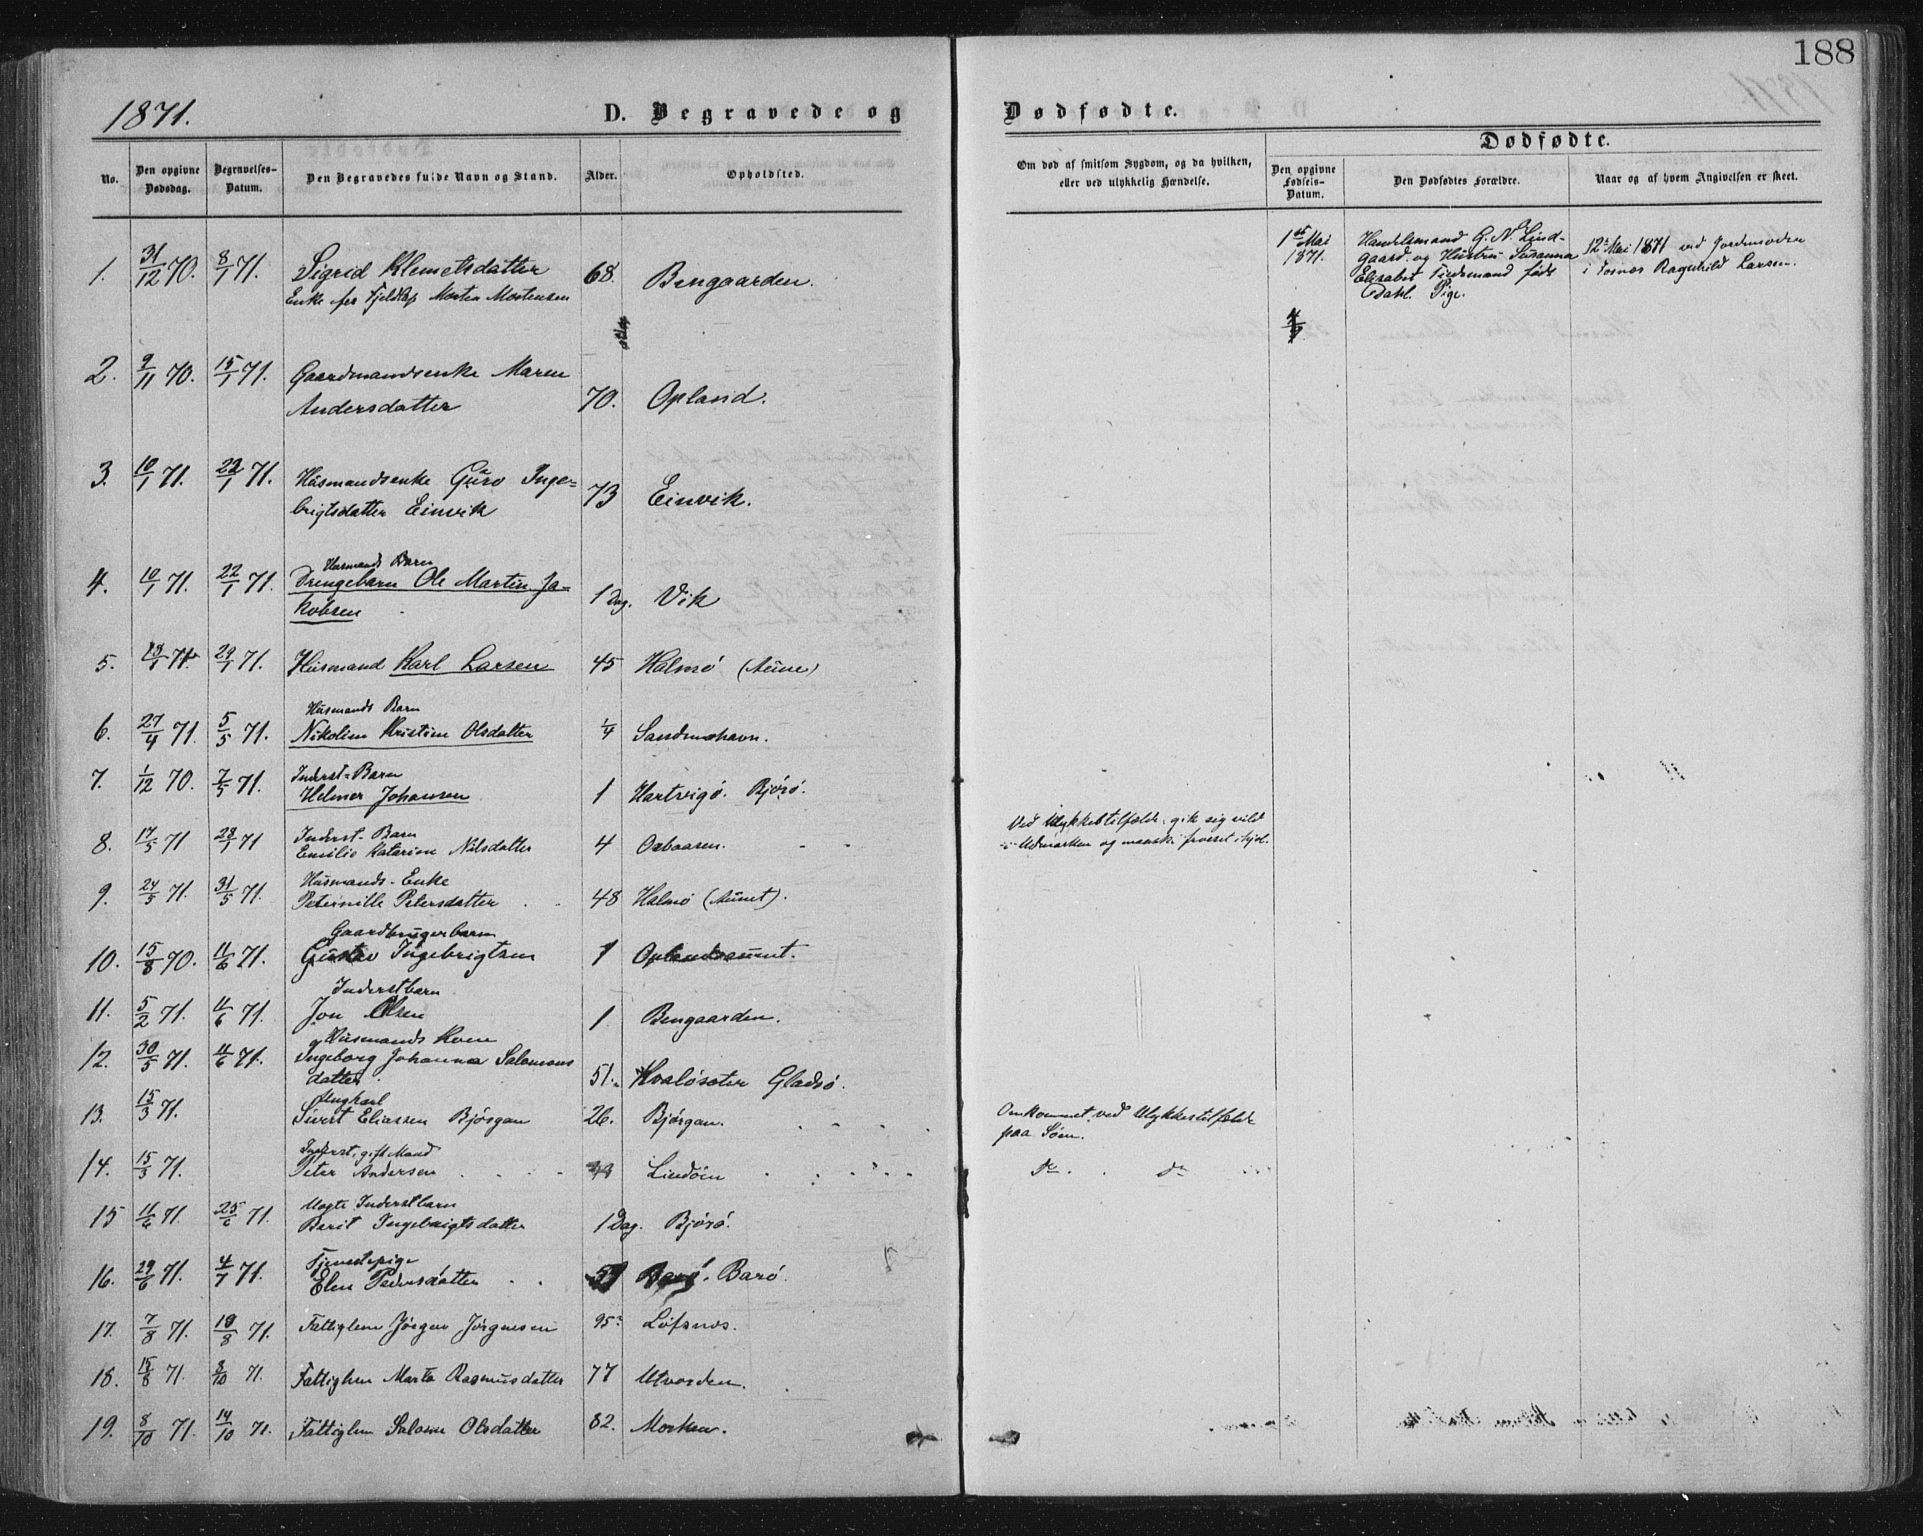 188
1871.
D. Begravede og Dødfødte.
Dødfødte.
No.
Den opgivne Dødsdag.
Begravelses-Datum.
Den Begravedes fulde Navn og Stand.
Alder.
Opholdsted.
Om død af smitsom Sygdom, og da hvilken, eller ved ulykkelig Hændelse.
Den opgivne Fødsels-Datum.
Den Dødfødtes Forældre.
Naar og af hvem Angivelsen er skeet.
1. 31/12 70. 8/1 71. Sigrid Klemetsdatter 68. Bengaarden.
Enke fra Fjeldlap Morten Mortensen
2. 9/11 70. 15/1 71. Gaardmandsenke Maren
Andersdatter 70. Opland.
3. 10/1 71. 22/1 71. Husmandsenke Guro Inge-
brigtsdatter Einvik 73 Einvik.
Husmands Barn
4. 10/1 71. 22/1 71. Drengebarn Ole Martin Ja-
kobsen 1 Dag. Vik
5. 71. 29/1 71. Husmand Karl Larsen 45 Halmø (Aune)
Husmands Barn
6. 27/4 71. 5/5 71. Nikoline Kristine Olsdatter 1/4 Sandmohavn.
Inderst-Barn
7. 1/12 70. 7/5 71. Helmer Johansen 1 Hartvigø. Bjørø.
Inderst-Barn
8. 17/5 71 28/ 71 Emilie Katarine Nilsdatter 4 Oxbaasen.
Ved Ulykkestilfælde, gik sig vild
i Udmarken og maaske frosset ihjel.
Husmands-Enke
9. 24/5 71. 31/5 71. Peternille Petersdatter 48 Halmø (Aunet).
Gaardbrugerbarn
10. 15/8 70. 11/6 71. Gustav Ingebrigtsen 1 Oplandsaunet.
Inderstbarn
11. 5/2 71. 11/6 71. Jon Olsen 1 Bengaarden.
Husmands Kone
12. 30/5 71. 11/6 71. Ingeborg Johanna Salomons
datter. 51. Kvaløsæter Gladsø.
Ungkarl
13. 15/3 71. Sivert Eliassen Bjørgan 26. Bjørgan.
Omkommet ved Ulykkestilfælde
paa Søen.
Inderst, gift Mand
14. 15/3 71. Peter Andersen Lindøen do do
Uægte Inderstbarn
15 11/6 71. 25/6 71. Berit Ingebrigtsdatter 1 Dag. Bjørø.
Tjenestepige
16. 29/6 71. 4/7 71. Elen Pedersdatter 57 Barø.
17. 7/8 71. 19/8 71. Fattiglem Jørgen Jørgensen 95 Løfsnes.
18. 15/8 71. 8/10 71. Fattiglem Marta Rasmusdatter 77 Utvorden.
19. 8/10 71. 14/10 71. Fattiglem Salome Olsdatter 82. Morken.
1ste Mai
1871.
Handelsmand G. N. Lind-
gaard og Hustru Susanna
Elisabet Tidemand født
Dahl. Pige.
12te Mai 1871 ved Jordemoder
i Fosnes Ragnhild Larsen.